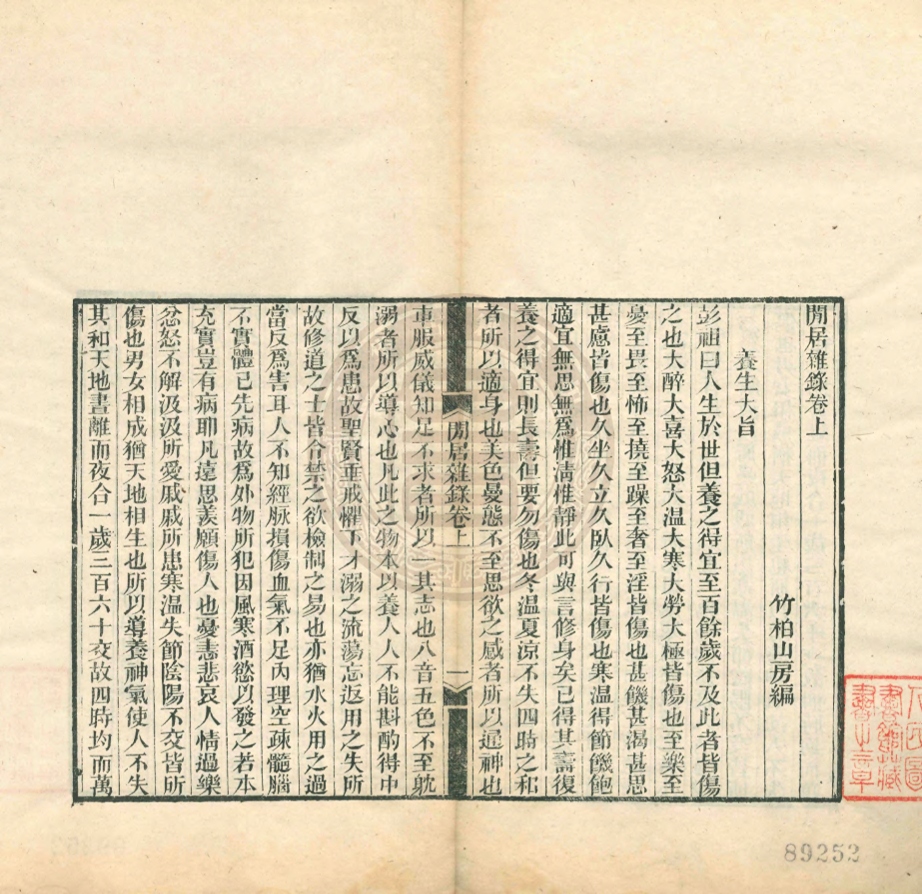 閒居雜錄卷上
竹柏山房編
養生大旨
彭祖曰人生於世但養之得宜至百餘歲不及此者皆傷
之也大醉大喜大怒大温大寒大勞大極皆傷也至樂至
憂至畏至怖至撓至躁至奢至淫皆傷也甚饑甚渴甚思
甚慮皆傷也久坐久立久臥久行皆傷也寒温得節饑飽
適宜無思無爲惟清惟靜此可與言修身矣已得其壽復
養之得宜則長壽但要勿傷也冬温夏涼不失四時之和
者所以適身也美色曼態不至思欲之感者所以通神也
閒居雜錄卷上
一
車服威儀知足不求者所以一其志也八音五色不至躭
溺者所以導心也凡此之物本以養人人不能斟酌得中
反以爲患故聖賢垂戒懼下才溺之流蕩忘返用之失所
故修道之士皆令禁之欲檢制之易也亦猶水火用之過
當反爲害耳人不知經脉損傷血氣不足內理空疎髓腦
不實體已先病故爲外物所犯因風寒酒慾以發之若本
充實豈有病耶凡遠思羨願傷人也憂恚悲哀人情過樂
忿怒不解汲汲所愛戚戚所患寒温失節陰陽不交皆所
傷也男女相成猶天地相生也所以導養神氣使人不失
其和天地晝離而夜合一歲三百六十交故四時均而萬
89252